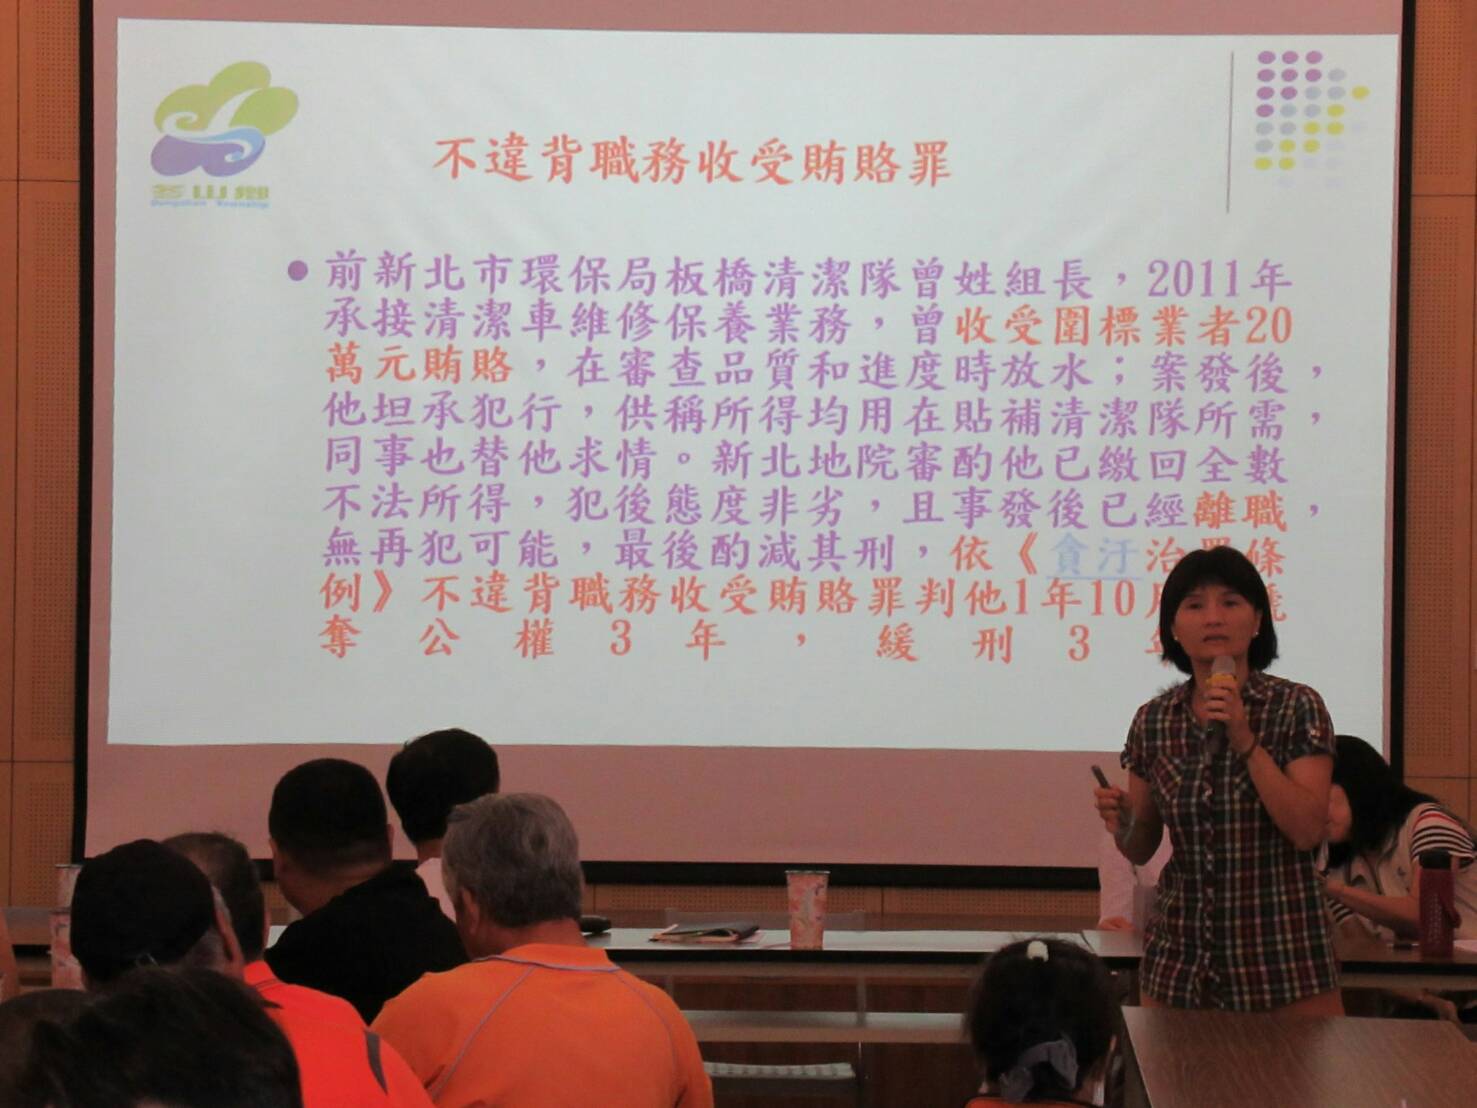 冬山鄉
Dongshan Township
不違背職務收受賄賂罪
前新北市環保局板橋清潔隊曾姓組長，2011年
承接清潔車維修保養業務，曾收受圍標業者20
萬元賄賂，在審查品質和進度時放水；案發後，
他坦承犯行，供稱所得均用在貼補清潔隊所需，
同事也替他求情。新北地院審酌他已繳回全數
不法所得，犯後態度非劣，且事發後已經離職，
無再犯可能，最後酌減其刑，依《貪汙治罪條
例》不違背職務收受賄賂罪判他1年10月
奪公權3年，緩刑3年